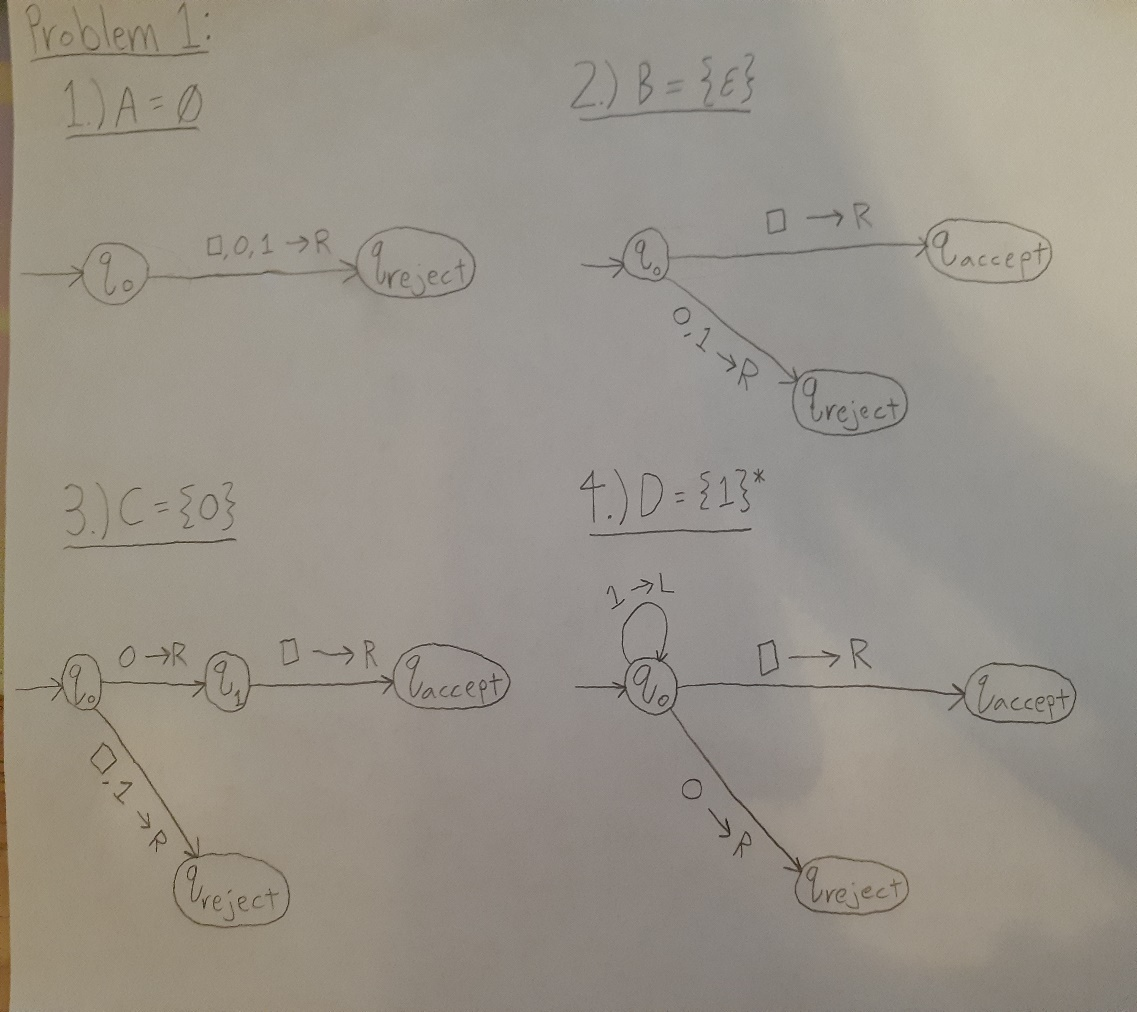 Problem 1:
1.) A = ∅
□,0,1 → R
q₀
q reject
2.) B = {ε}
□ → R
q₀
q accept
0,1 → R
q reject
3.) C = {0}
0 → R
□ → R
q₀
q₁
q accept
□,1 → R
q reject
4.) D = {1}*
1 → L
□ → R
q₀
q accept
0 → R
q reject